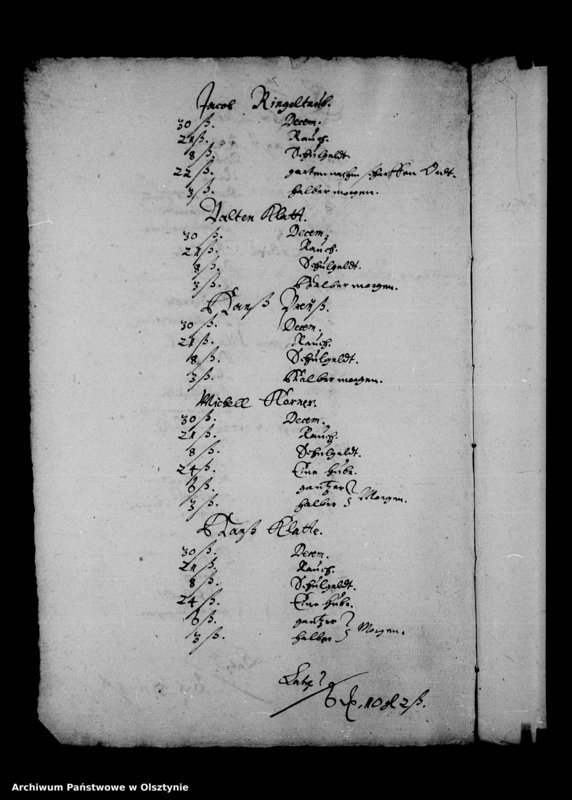 Jacob Ringeltaub.
30 ß. Decem.
21 ß. Rauch.
8 ß. Schulgeldt.
22 ß. garten nachm
3 ß. halber morgen.
Valten Klatt.
30 ß. Decem.
21 ß. Rauch.
8 ß. Schulgeldt.
3 ß. Halber morgen.
Hanß Preuß.
30 ß. Decem.
21 ß. Rauch.
8 ß. Schulgeldt.
3 ß. Halber morgen.
Michell Körner.
30 ß. Decem.
21 ß. Rauch.
8 ß. Schulgeldt.
24 ß. Eine Hube.
6 ß. gantzer
3 ß. halber Morgen.
Hanß Klatte.
30 ß. Decem.
21 ß. Rauch.
8 ß. Schulgeldt.
24 ß. Eine Hube.
6 ß. gantzer
3 ß. halber Morgen.
Archiwum Państwowe w Olsztynie